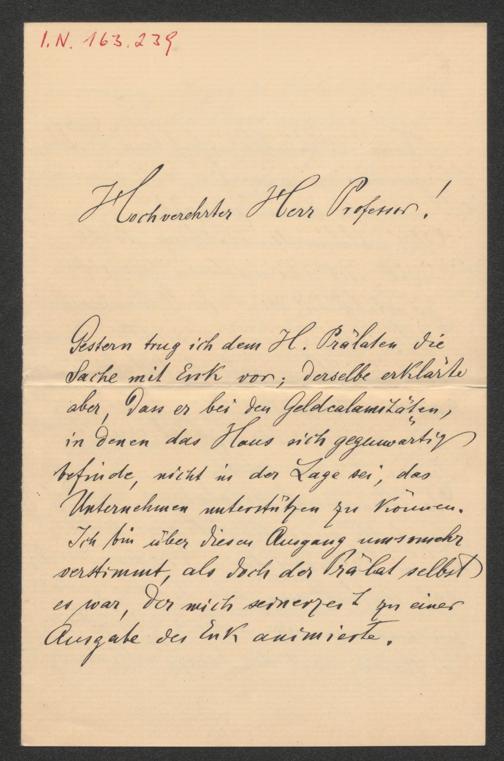 I.N. 163.239
Hochverehrter Herr Professor!
Gestern trug ich dem H. Prälaten die
Sache mit Enk vor; derselbe erklärte
aber, dass er bei den Geldcalamitäten,
in denen das Haus sich gegenwärtig
befinde, nicht in der Lage sei, das
Unternehmen unterstützen zu können.
Ich bin über diesen Ausgang umsomehr
verstimmt, als doch der Prälat selbst
es war, der mich seinerzeit zu einer
Ausgabe des Enk animierte.